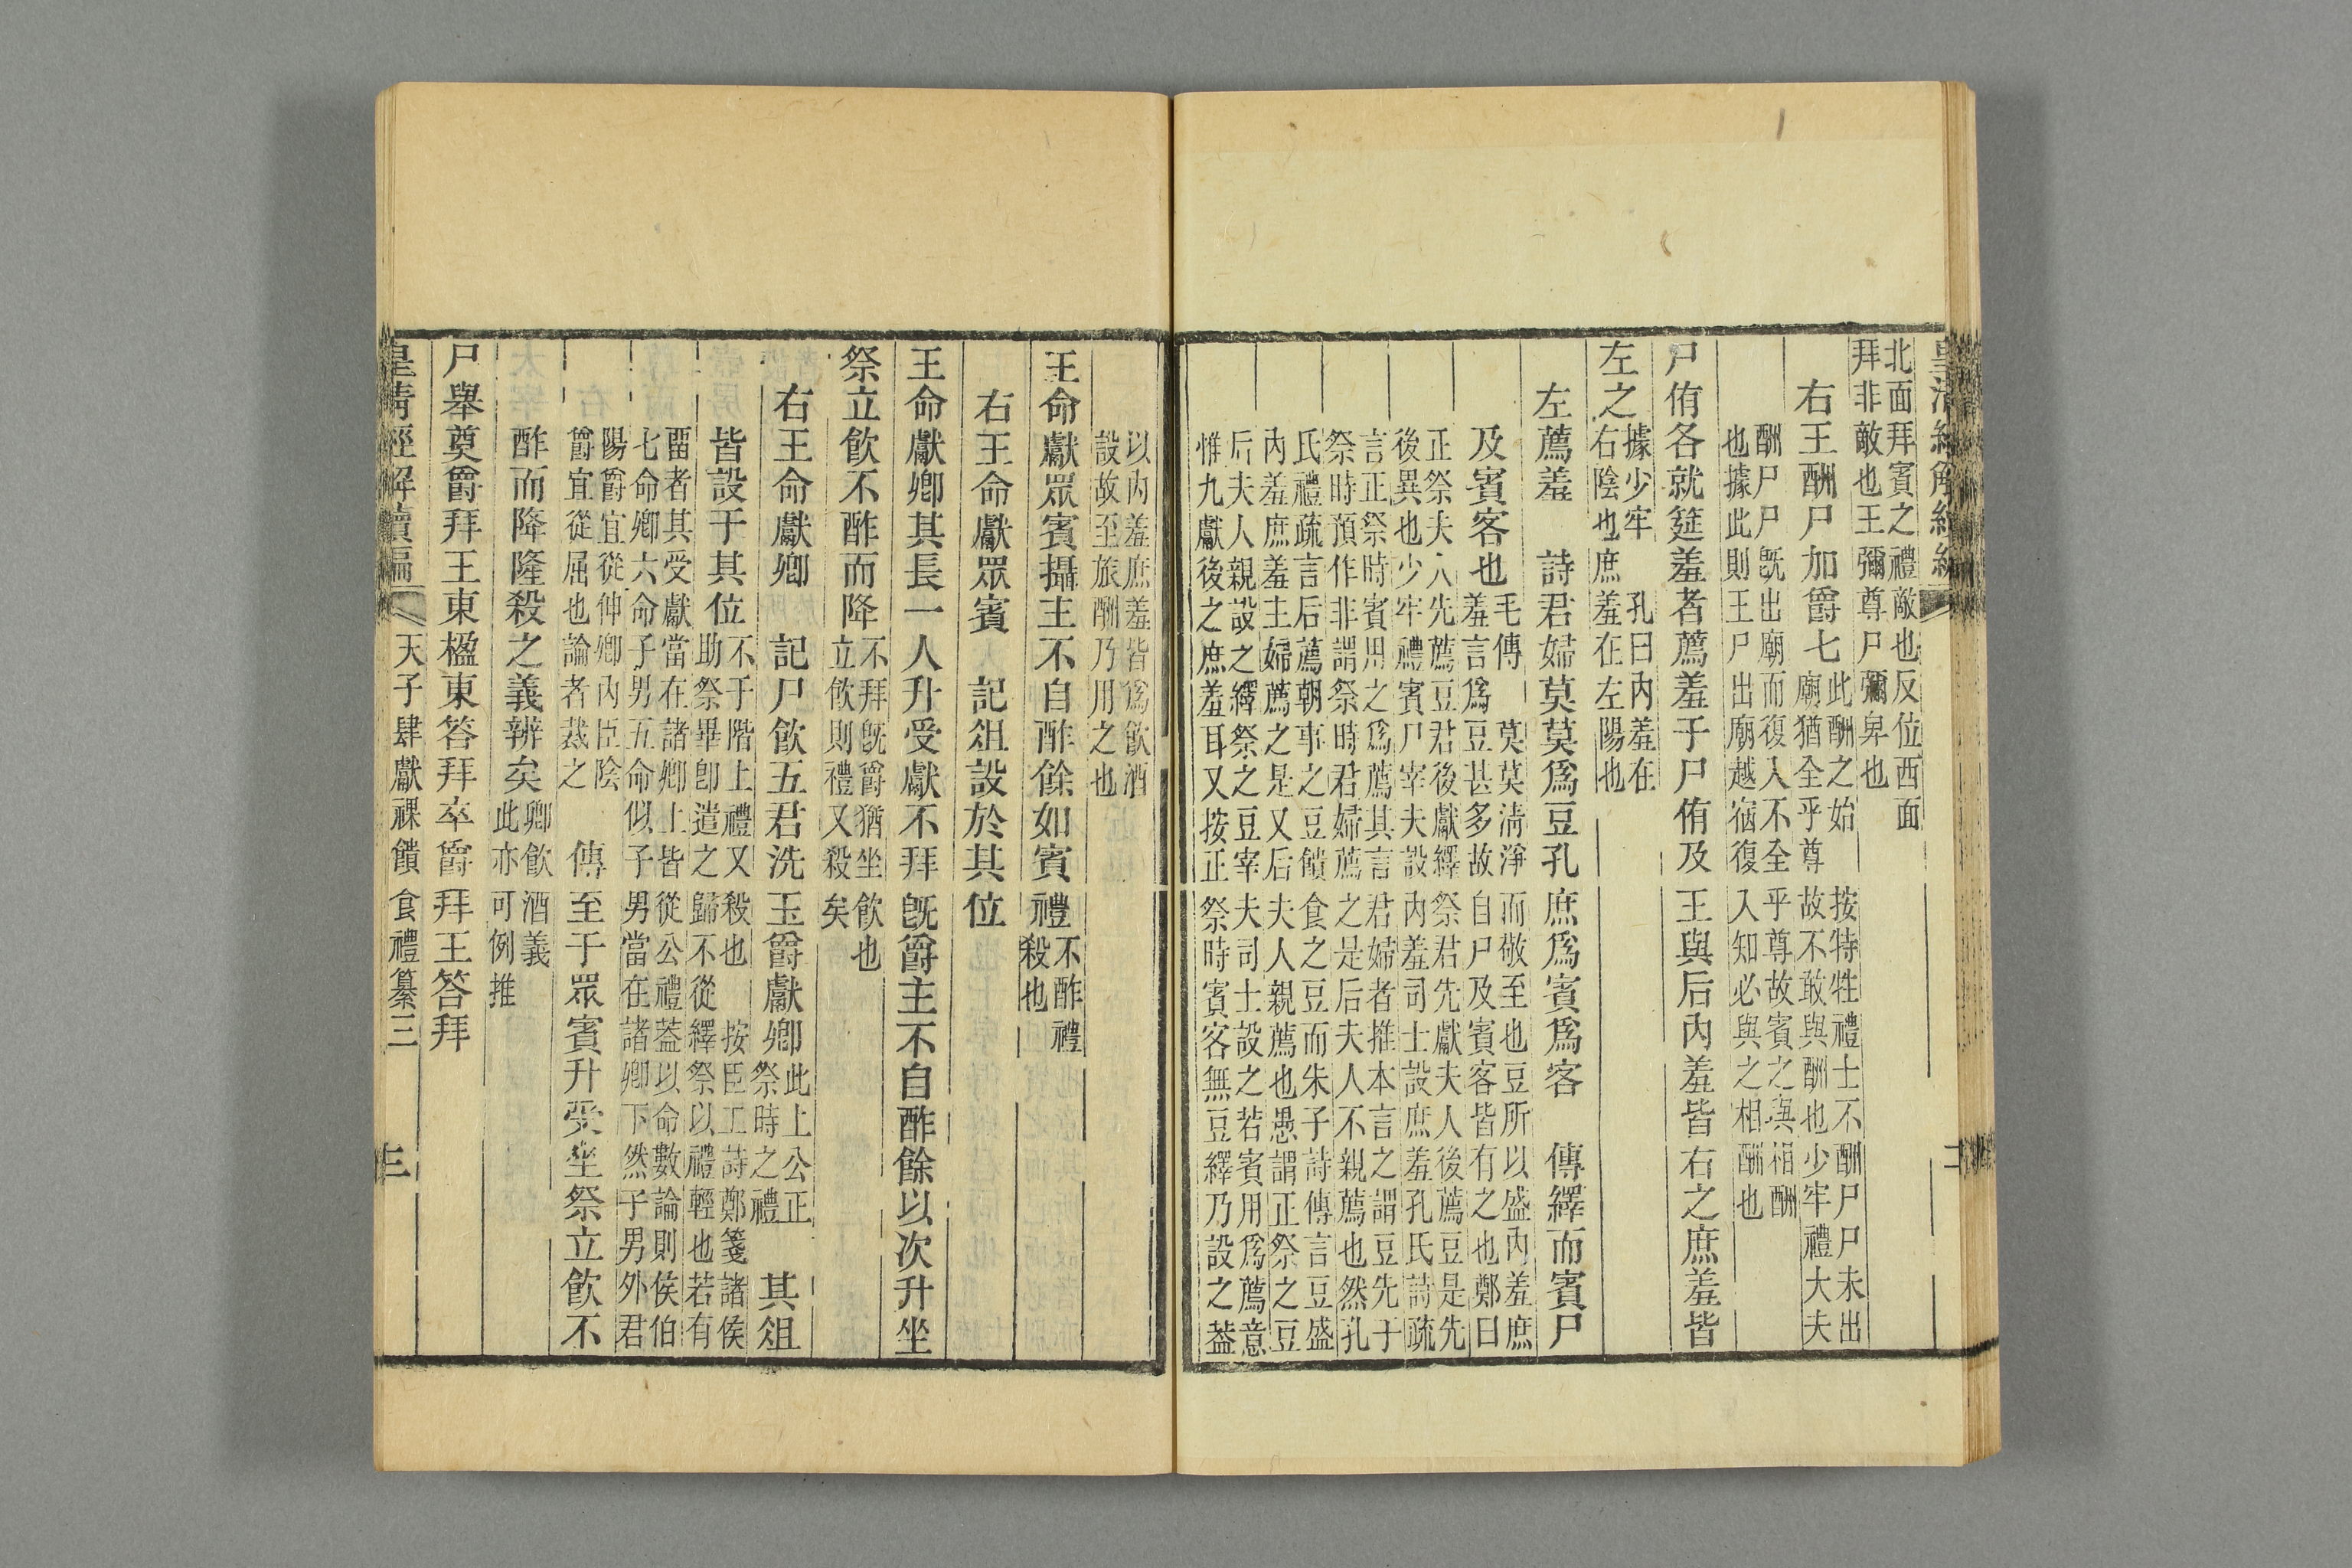 皇清經解續編
北面拜賓之禮敵也反位西面
拜非敵也王彌尊尸彌卑也
右王酬尸加爵七
此酬之始
廟猶全乎尊
按特牲禮士不酬尸尸未出
故不敢與酬也少牢禮大夫
酬尸尸既出廟而復入不全乎尊故賓之與相酬
也據此則王尸出廟越宿復入知必與之相酬也
尸侑各就筵羞者薦羞于尸侑及王與后內羞皆右之庶羞皆
左之
據少牢 孔曰內羞在
右陰也庶羞在左陽也
左薦羞 詩君婦莫莫爲豆孔庶爲賓爲客 傳繹而賓尸
及賓客也
毛傳 莫莫清淨而敬至也豆所以盛內羞庶
羞言爲豆甚多故自尸及賓客皆有之也鄭曰
正祭夫人先薦豆君後獻繹祭君先獻夫人後薦豆是先
後異也少牢禮賓尸宰夫設內羞司士設庶羞孔氏詩疏
言正祭時賓用之爲薦其言君婦者推本言之謂豆先于
祭時預作非謂祭時君婦薦之是后夫人不親薦也然孔
氏禮疏言后薦朝事之豆饋食之豆而朱子詩傳言豆盛
內羞庶羞主婦薦之是又后夫人親薦也愚謂正祭之豆
后夫人親設之繹祭之豆宰夫司士設之若賓用爲薦意
惟九獻後之庶羞耳又按正祭時賓客無豆繹乃設之葢
以內羞庶羞皆爲飮酒
設故至旅酬乃用之也
王命獻眾賓攝主不自酢餘如賓禮
不酢禮
殺也
右王命獻眾賓 記俎設於其位
王命獻卿其長一人升受獻不拜既爵主不自酢餘以次升坐
祭立飮不酢而降
不拜既爵猶坐飮也
立飮則禮又殺矣
右王命獻卿 記尸飮五君洗玉爵獻卿
此上公正
祭時之禮
其俎
皆設于其位
不于階上禮又殺也 按臣工詩鄭箋諸侯
助祭畢卽遣之歸不從繹祭以禮輕也若有
畱者其受獻當在諸卿上皆從公禮葢以命數論則侯伯
七命卿六命子男五命似子男當在諸卿下然子男外君
陽爵宜從伸卿內臣陰
爵宜從屈也論者裁之
傳至于眾賓升受坐祭立飮不
酢而降隆殺之義辨矣
卿飮酒義
此亦可例推
尸舉奠爵拜王東楹東答拜卒爵拜王答拜
皇清經解續編 天子肆獻祼饋食禮纂三 三